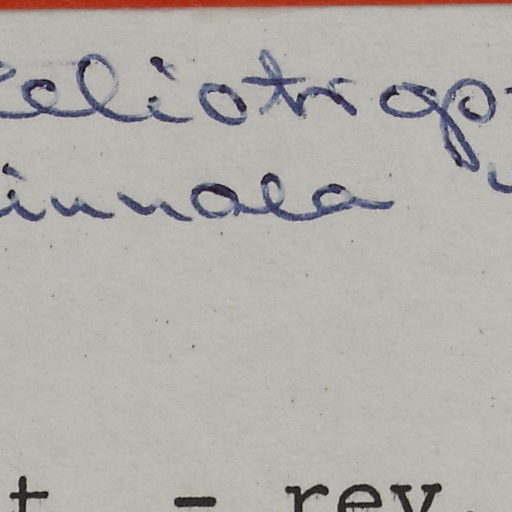 eliotrop
innala
t. - rev.